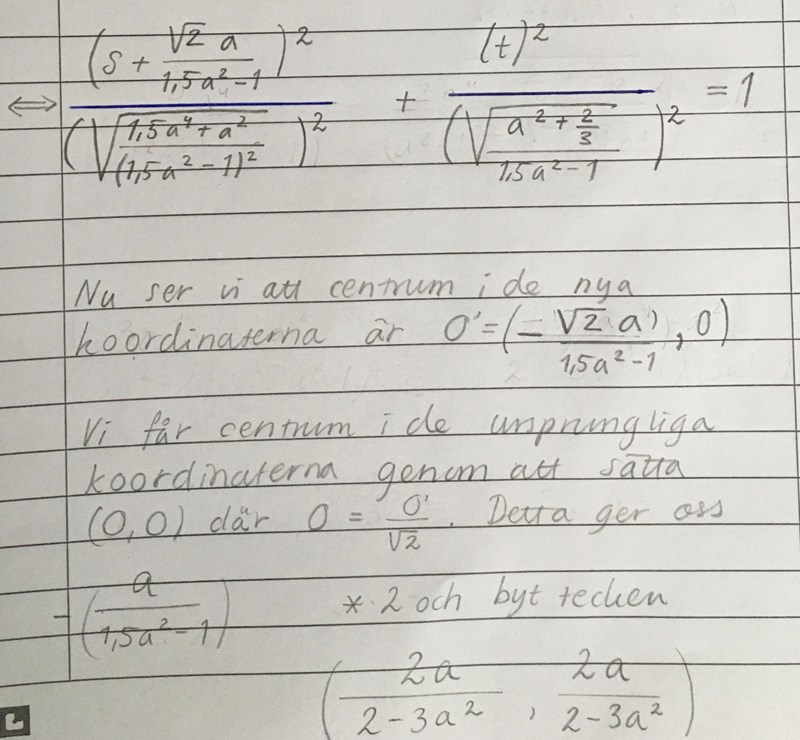 ⟺ (s + √2 a / (1,5a² - 1))² / (√((1,5a⁴ + a²) / (1,5a² - 1)²))² + (t)² / (√((a² + 2/3) / (1,5a² - 1)))² = 1
Nu ser vi att centrum i de nya
koordinaterna är O' = (- √2 a / (1,5a² - 1), 0)
Vi får centrum i de ursprungliga
koordinaterna genom att sätta
(O, O) där O = O' / √2. Detta ger oss
- (a / (1,5a² - 1)) * 2 och byt tecken
(2a / (2 - 3a²), 2a / (2 - 3a²))